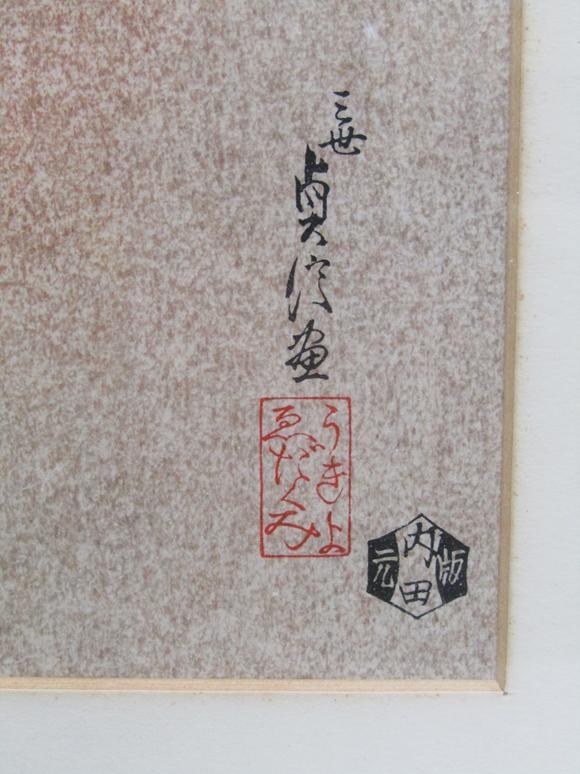 三世
貞信画
うきよ
ゑだくみ
版元
内田